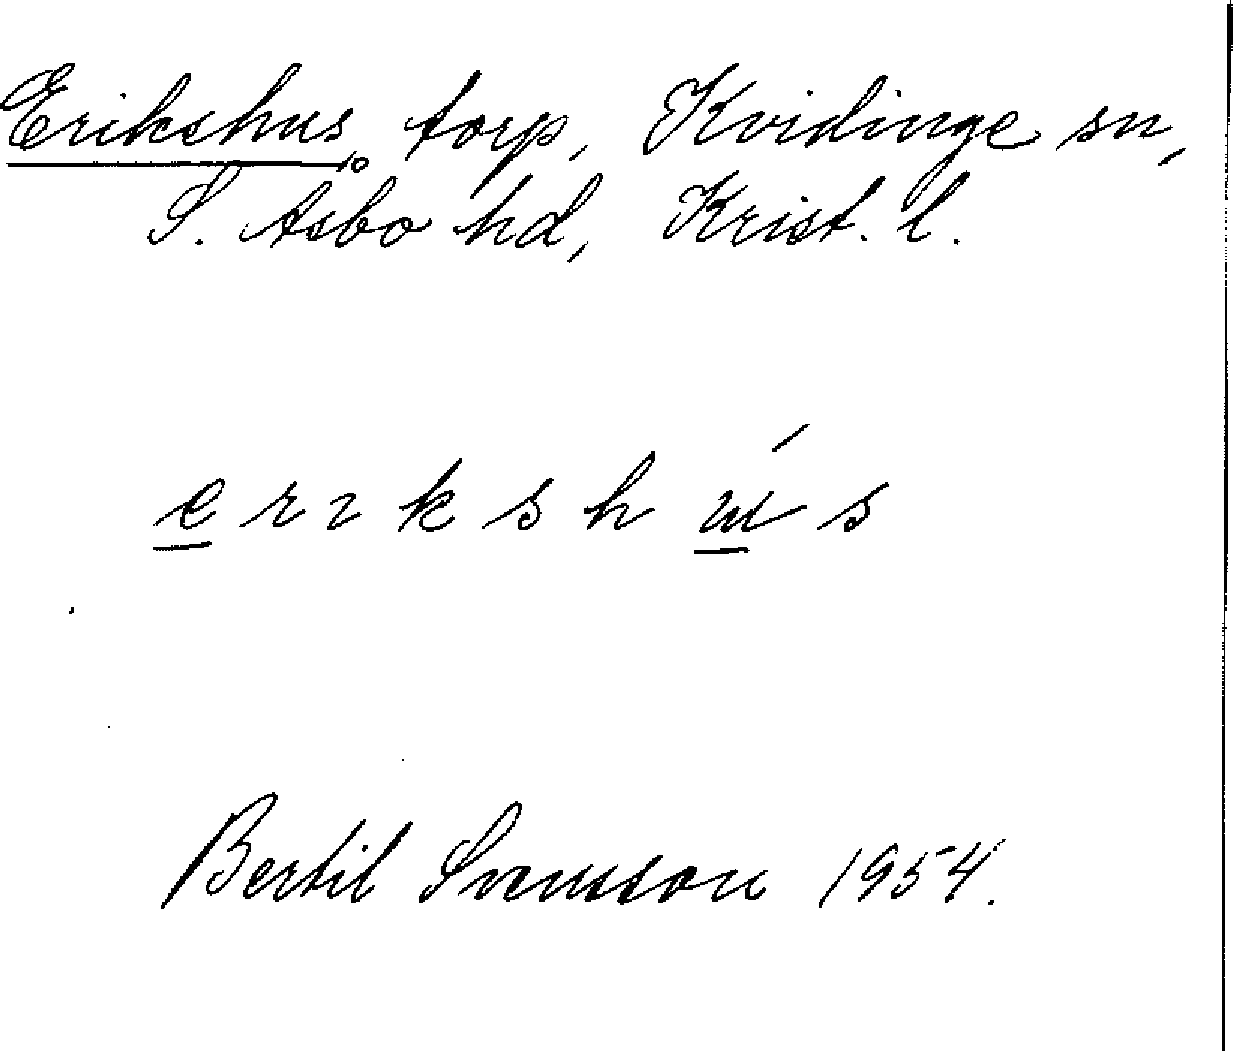 Erikshus, torp, Kvidinge sn,
S. Åsbo hd, Krist. l.
e r ɿ k s h ú s
Bertil Svensson 1954.